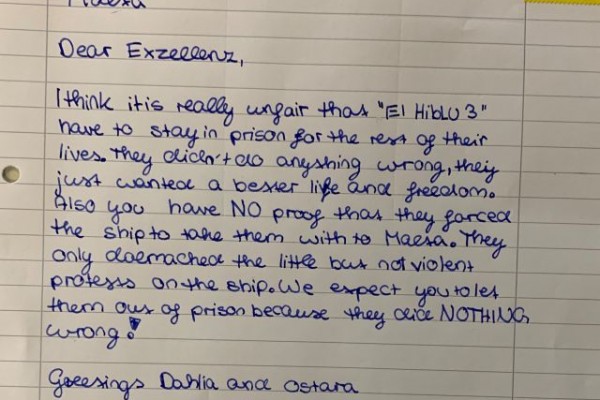 Dear Exzellenz,
I think it is really unfair that "El HiblU 3"
have to stay in prison for the rest of their
lives. They didn't do anything wrong, they
just wanted a better life and freedom.
Also you have NO proof that they forced
the ship to take them with to Malta. They
only the little but not violent
protests on the ship. We expect you to let
them out of prison because they did NOTHING
wrong!
Greetings Dahlia and Ostara